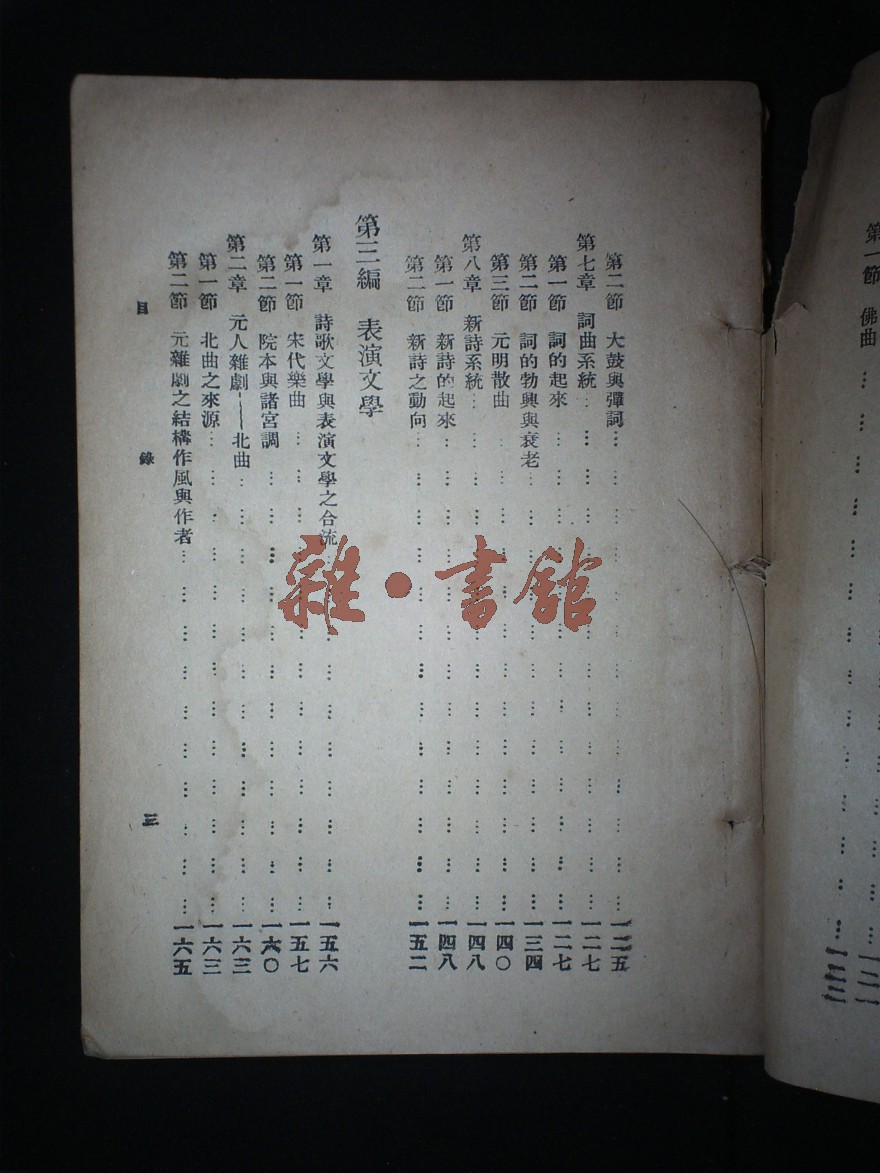 第一節 佛曲
第二節 大鼓與彈詞 一二五
第七章 詞曲系統 一二七
第一節 詞的起來 一二七
第二節 詞的勃興與衰老 一三四
第三節 元明散曲 一四〇
第八章 新詩系統 一四八
第一節 新詩的起來 一四八
第二節 新詩之動向 一五二
第三編 表演文學
第一章 詩歌文學與表演文學之合流 一五六
第一節 宋代樂曲 一五七
第二節 院本與諸宮調 一六〇
第二章 元人雜劇——北曲 一六三
第一節 北曲之來源 一六三
第二節 元雜劇之結構作風與作者 一六五
目 錄 三
雜·書館